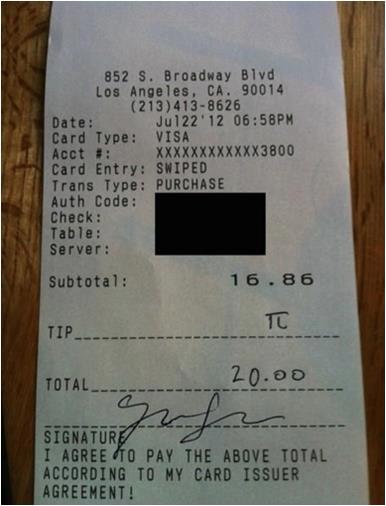 852 S. Broadway Blvd
Los Angeles, CA. 90014
(213)413-8626
Date: Jul22'12 06:58PM
Card Type: VISA
Acct #: XXXXXXXXXXXX3800
Card Entry: SWIPED
Trans Type: PURCHASE
Auth Code:
Check:
Table:
Server:
Subtotal: 16.86
TIP π
TOTAL 20.00
SIGNATURE
I AGREE TO PAY THE ABOVE TOTAL
ACCORDING TO MY CARD ISSUER
AGREEMENT!